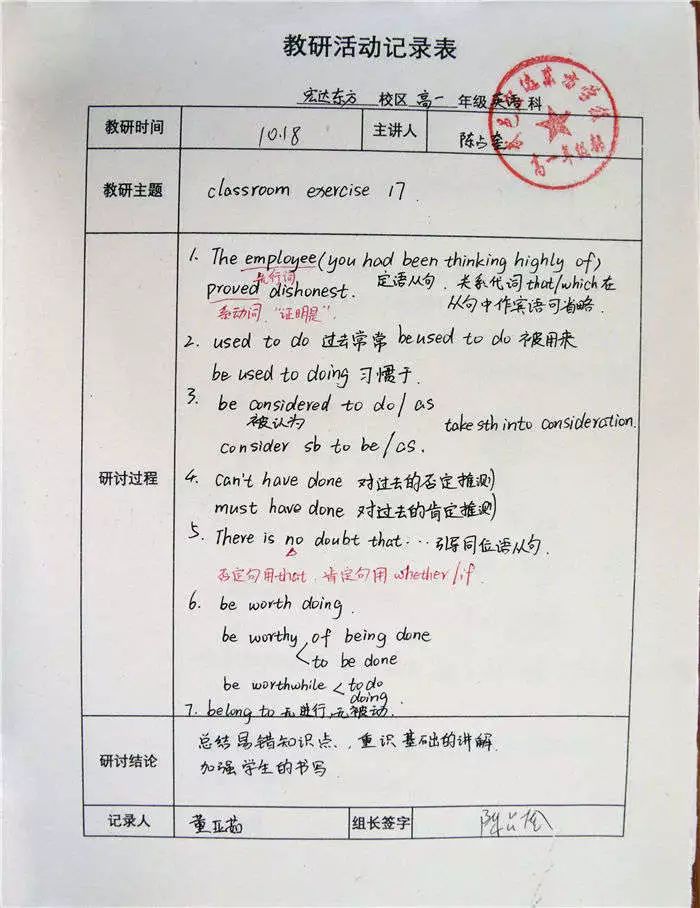 教研活动记录表
宏达东方 校区 高一 年级 英语 科
教研时间 10.18 主讲人 陈占奎
教研主题 classroom exercise 17
研讨过程
1. The employee (you had been thinking highly of)
先行词 定语从句. 关系代词 that/which 在
proved dishonest. 从句中作宾语可省略.
系动词. "证明是".
2. used to do 过去常常 be used to do 被用来
be used to doing 习惯于.
3. be considered to do / as
被认为 take sth into consideration.
consider sb to be / as.
4. can't have done 对过去的否定推测)
must have done 对过去的肯定推测)
5. There is no doubt that... 引导同位语从句.
否定句用that. 肯定句用 whether/if.
6. be worth doing.
be worthy of being done
to be done
be worthwhile to do
doing.
7. belong to 无进行, 无被动.
研讨结论 总结易错知识点、, 重识基础的讲解.
加强学生的书写
记录人 董亚茹 组长签字
东方学校
高一年级部